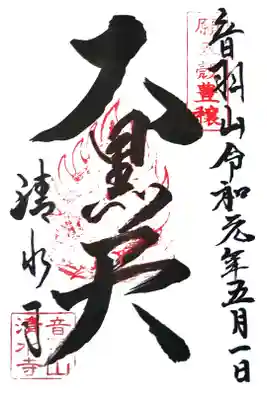 音羽山令和元年五月一日
願五穀
豊穣
大黒天
清水寺
音羽山
清水寺